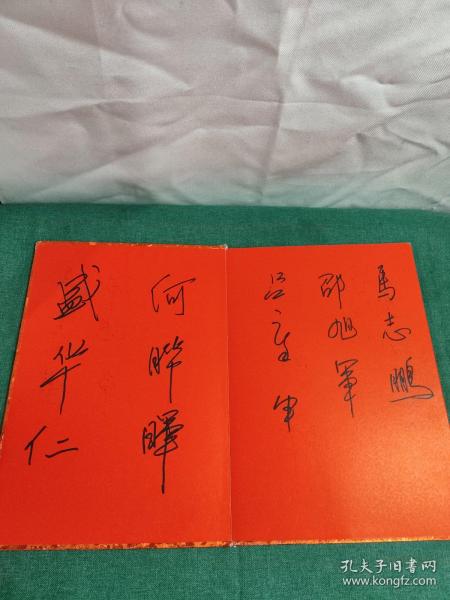 馬志鵬
邵旭軍
何晔暉
盛华仁
孔夫子旧书网
www.kongfz.com